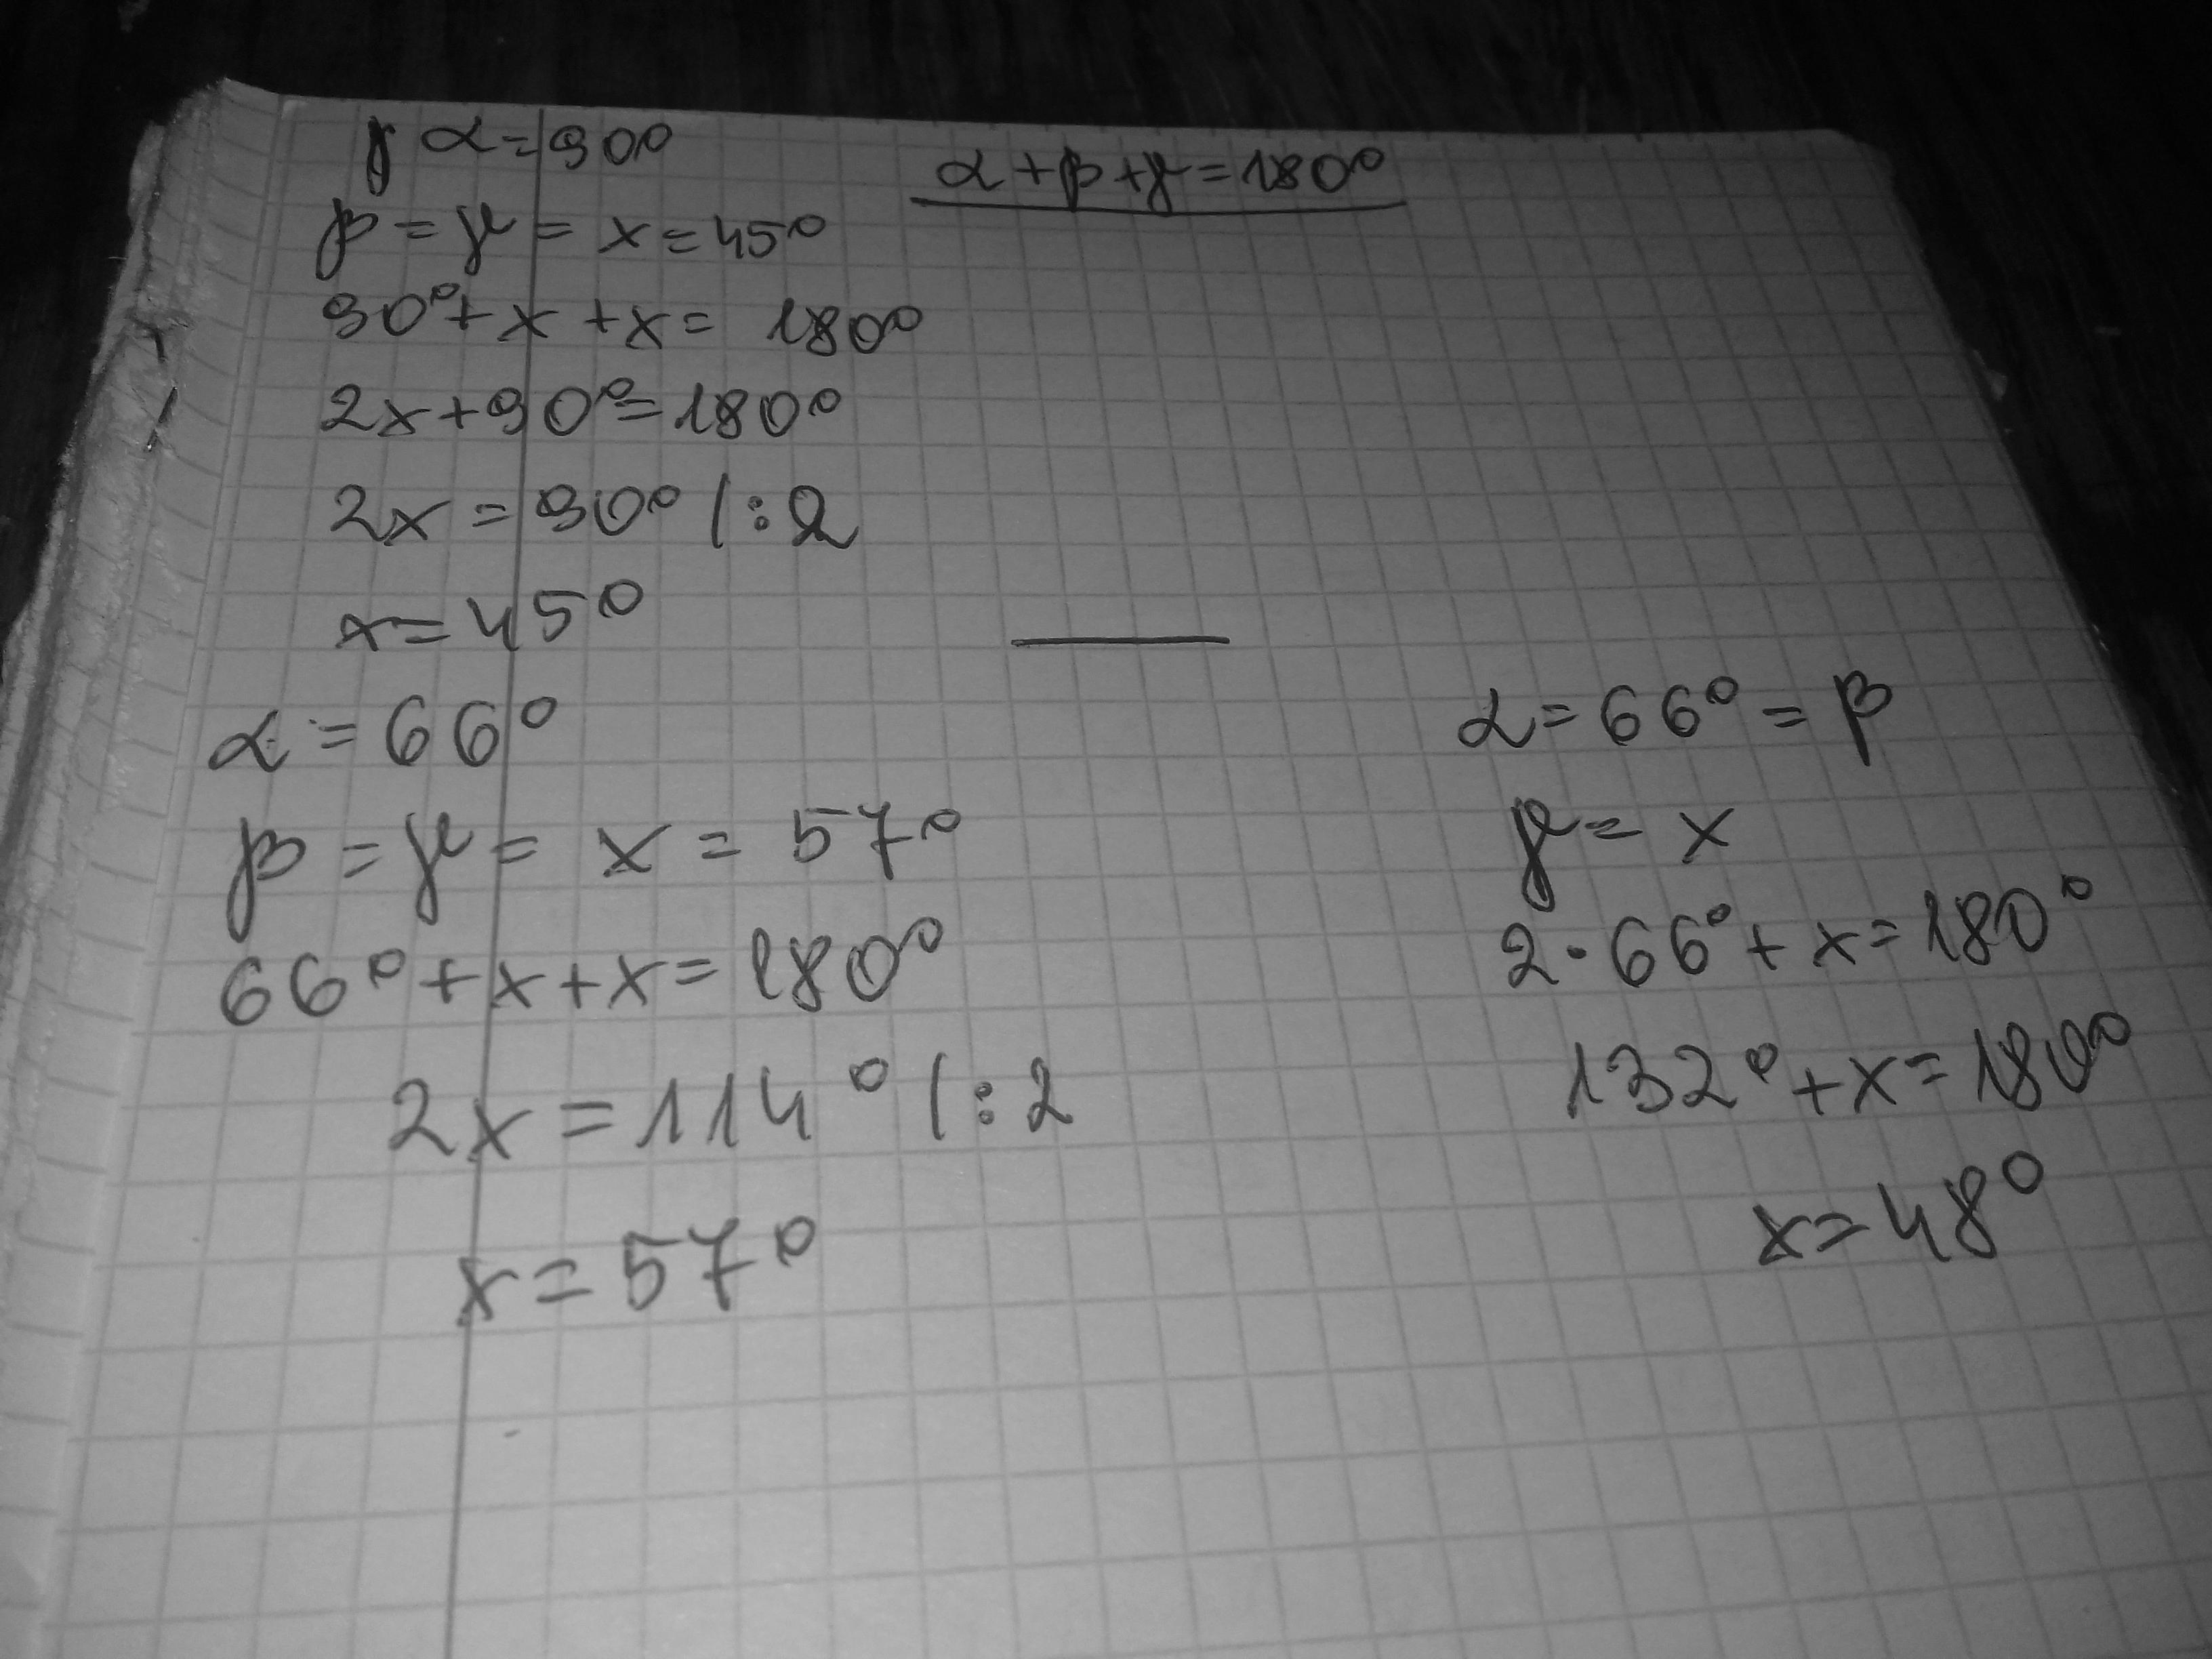 α=90°
α+β+γ=180°
β=γ=x=45°
90°+x+x=180°
2x+90°=180°
2x=90° /:2
x=45°
α=66°
β=γ=x=57°
66°+x+x=180°
2x=114° /:2
x=57°
α=66°=β
γ=x
2·66°+x=180°
132°+x=180°
x=48°